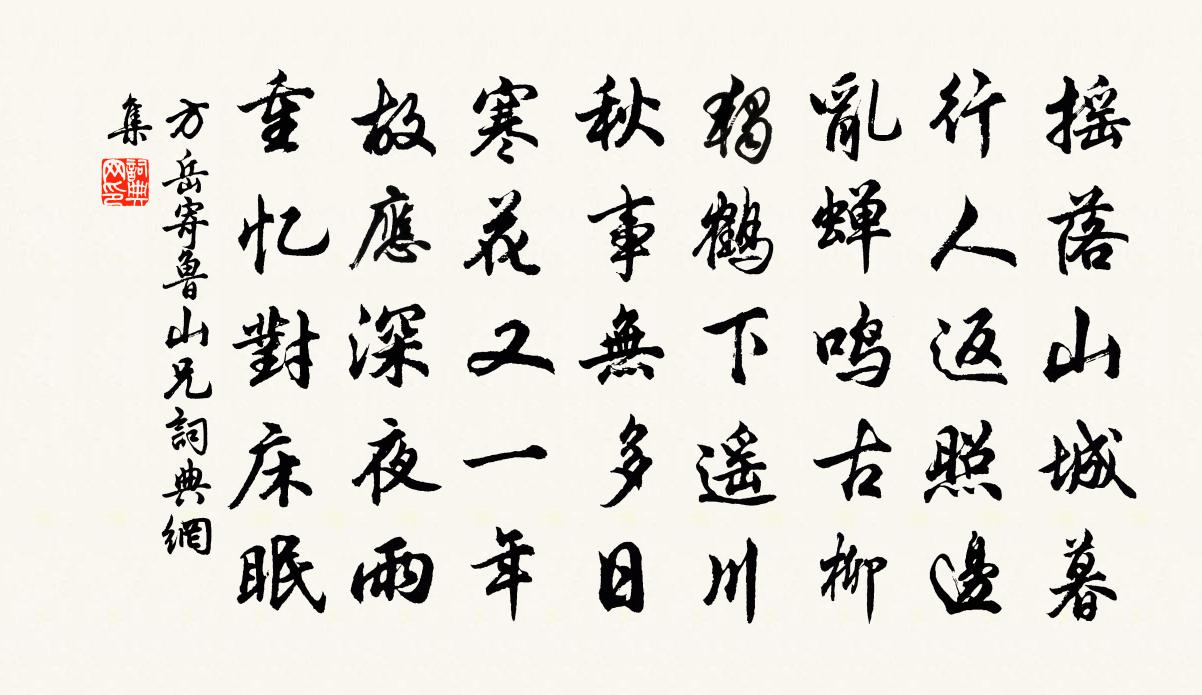 摇落山城暮
行人返照邊
亂蝉鸣古柳
獨鶴下遥川
秋事無多日
寒花又一年
故應深夜雨
重忆對床眠
方岳寄魯山兄詞典網
集
詞典网印